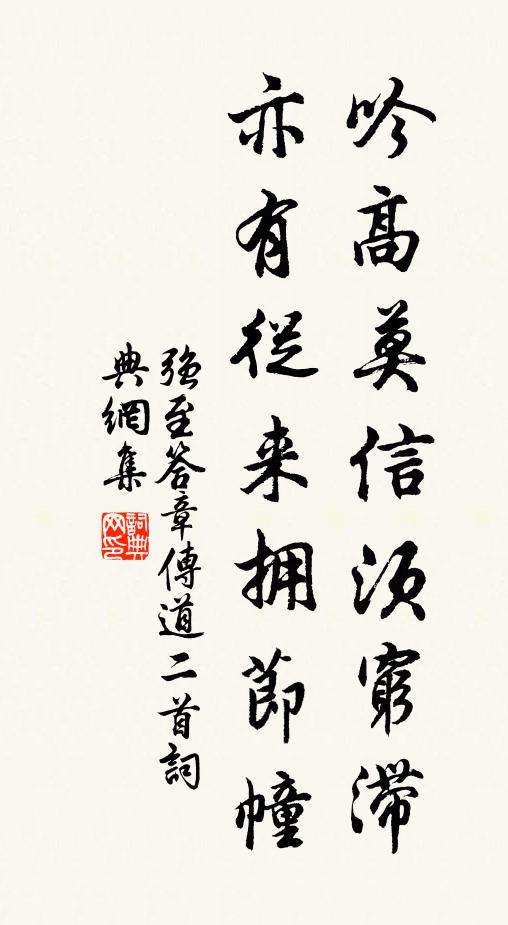 吟高莫信須窮滯
亦有從来拥節幢
强至答章傳道二首詞
典網集
詞典网印